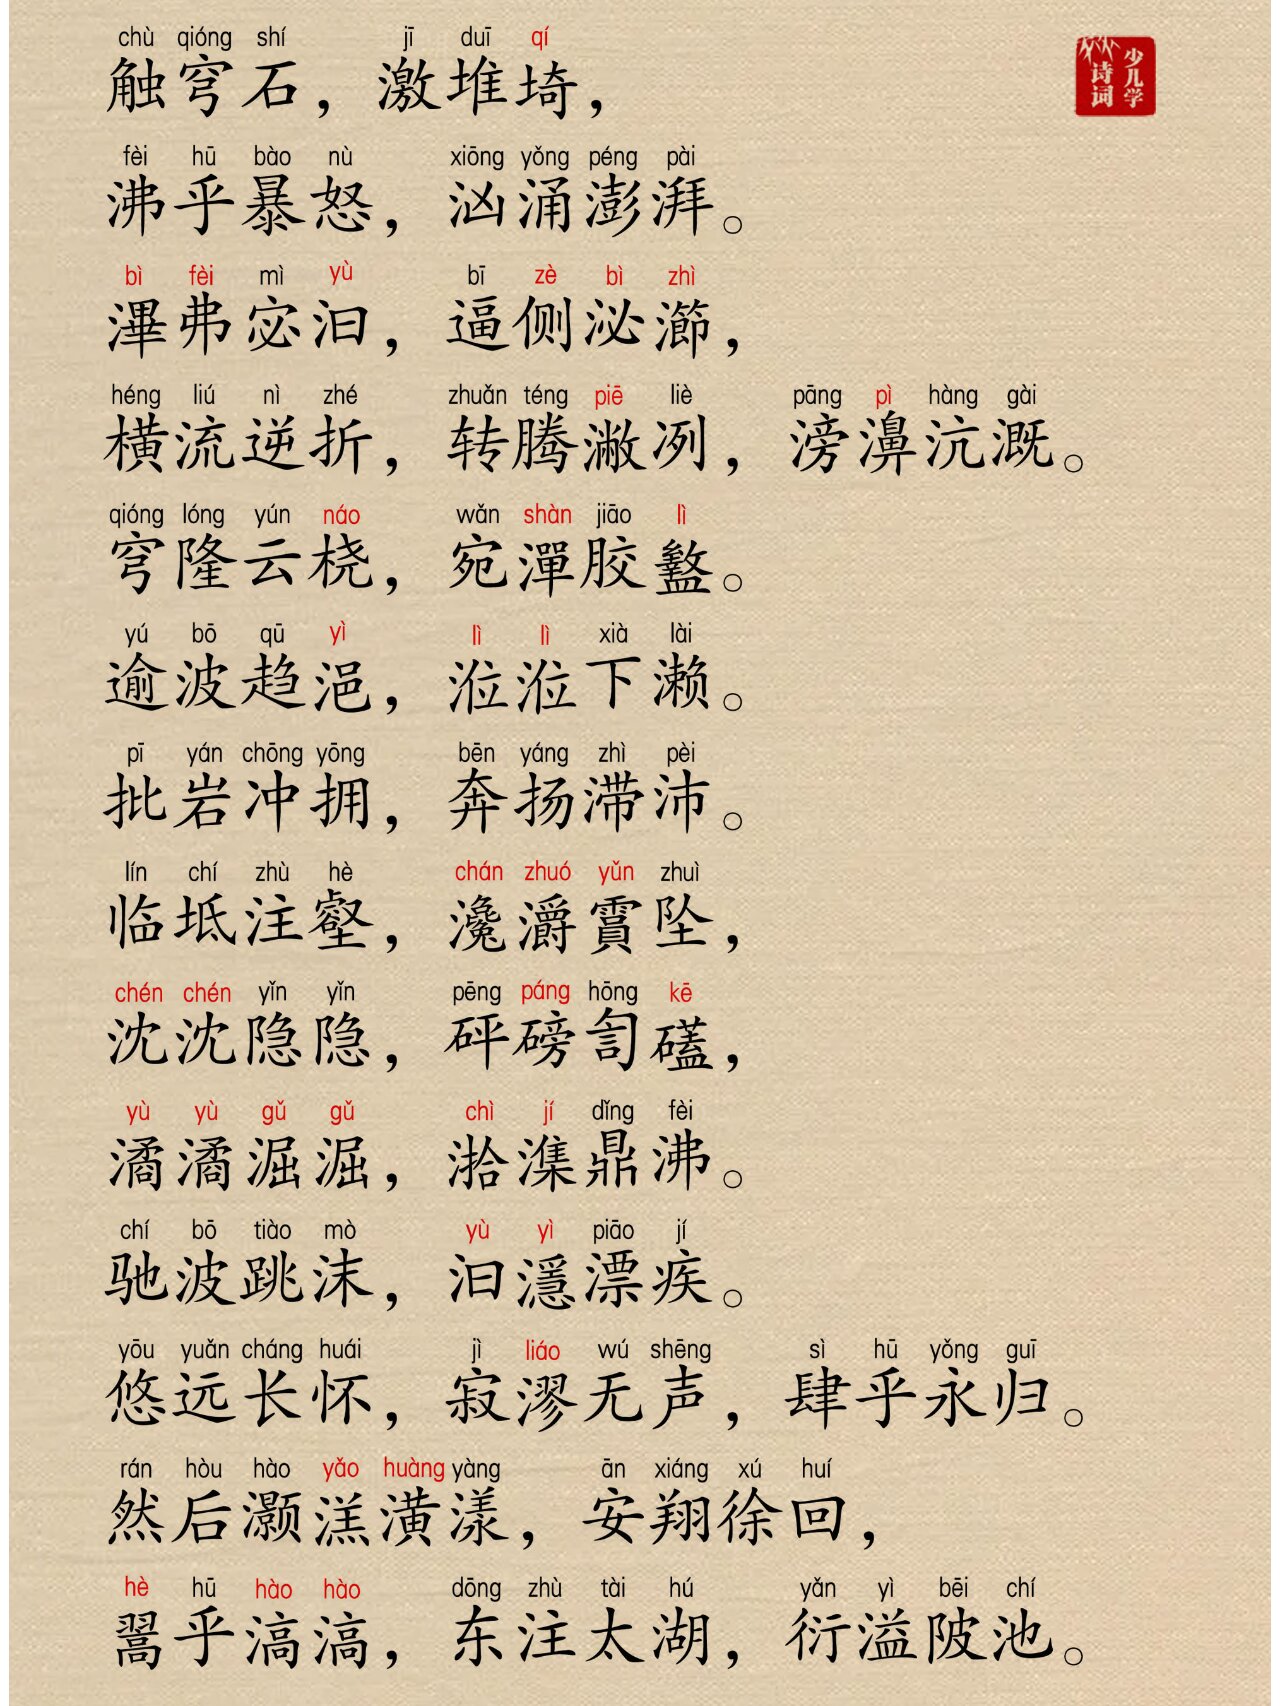 chù qióng shí jī duī qí
触穹石，激堆埼，
少儿学诗词
fèi hū bào nù xiōng yǒng péng pài
沸乎暴怒，汹涌澎湃。
bì fèi mì yù bī zè bì zhì
滭弗宓汩，逼侧泌瀄，
héng liú nì zhé zhuǎn téng piē liè pāng pì hàng gài
横流逆折，转腾潎冽，滂濞沆溉。
qióng lóng yún náo wǎn shàn jiāo lì
穹隆云桡，宛潬胶盭。
yú bō qū yì lì lì xià lài
逾波趋浥，涖涖下濑。
pī yán chōng yōng bēn yáng zhì pèi
批岩冲拥，奔扬滞沛。
lín chí zhù hè chán zhuó yǔn zhuì
临坻注壑，瀺灂霣坠，
chén chén yǐn yǐn pēng páng hōng kē
沈沈隐隐，砰磅訇礚，
yù yù gǔ gǔ chì jí dǐng fèi
潏潏淈淈，湁潗鼎沸。
chí bō tiào mò yù yì piāo jí
驰波跳沫，汩㶏漂疾。
yōu yuǎn cháng huái jì liáo wú shēng sì hū yǒng guī
悠远长怀，寂漻无声，肆乎永归。
rán hòu hào yǎo huàng yàng ān xiáng xú huí
然后灏溔潢漾，安翔徐回，
hè hū hào hào dōng zhù tài hú yǎn yì bēi chí
翯乎滈滈，东注太湖，衍溢陂池。